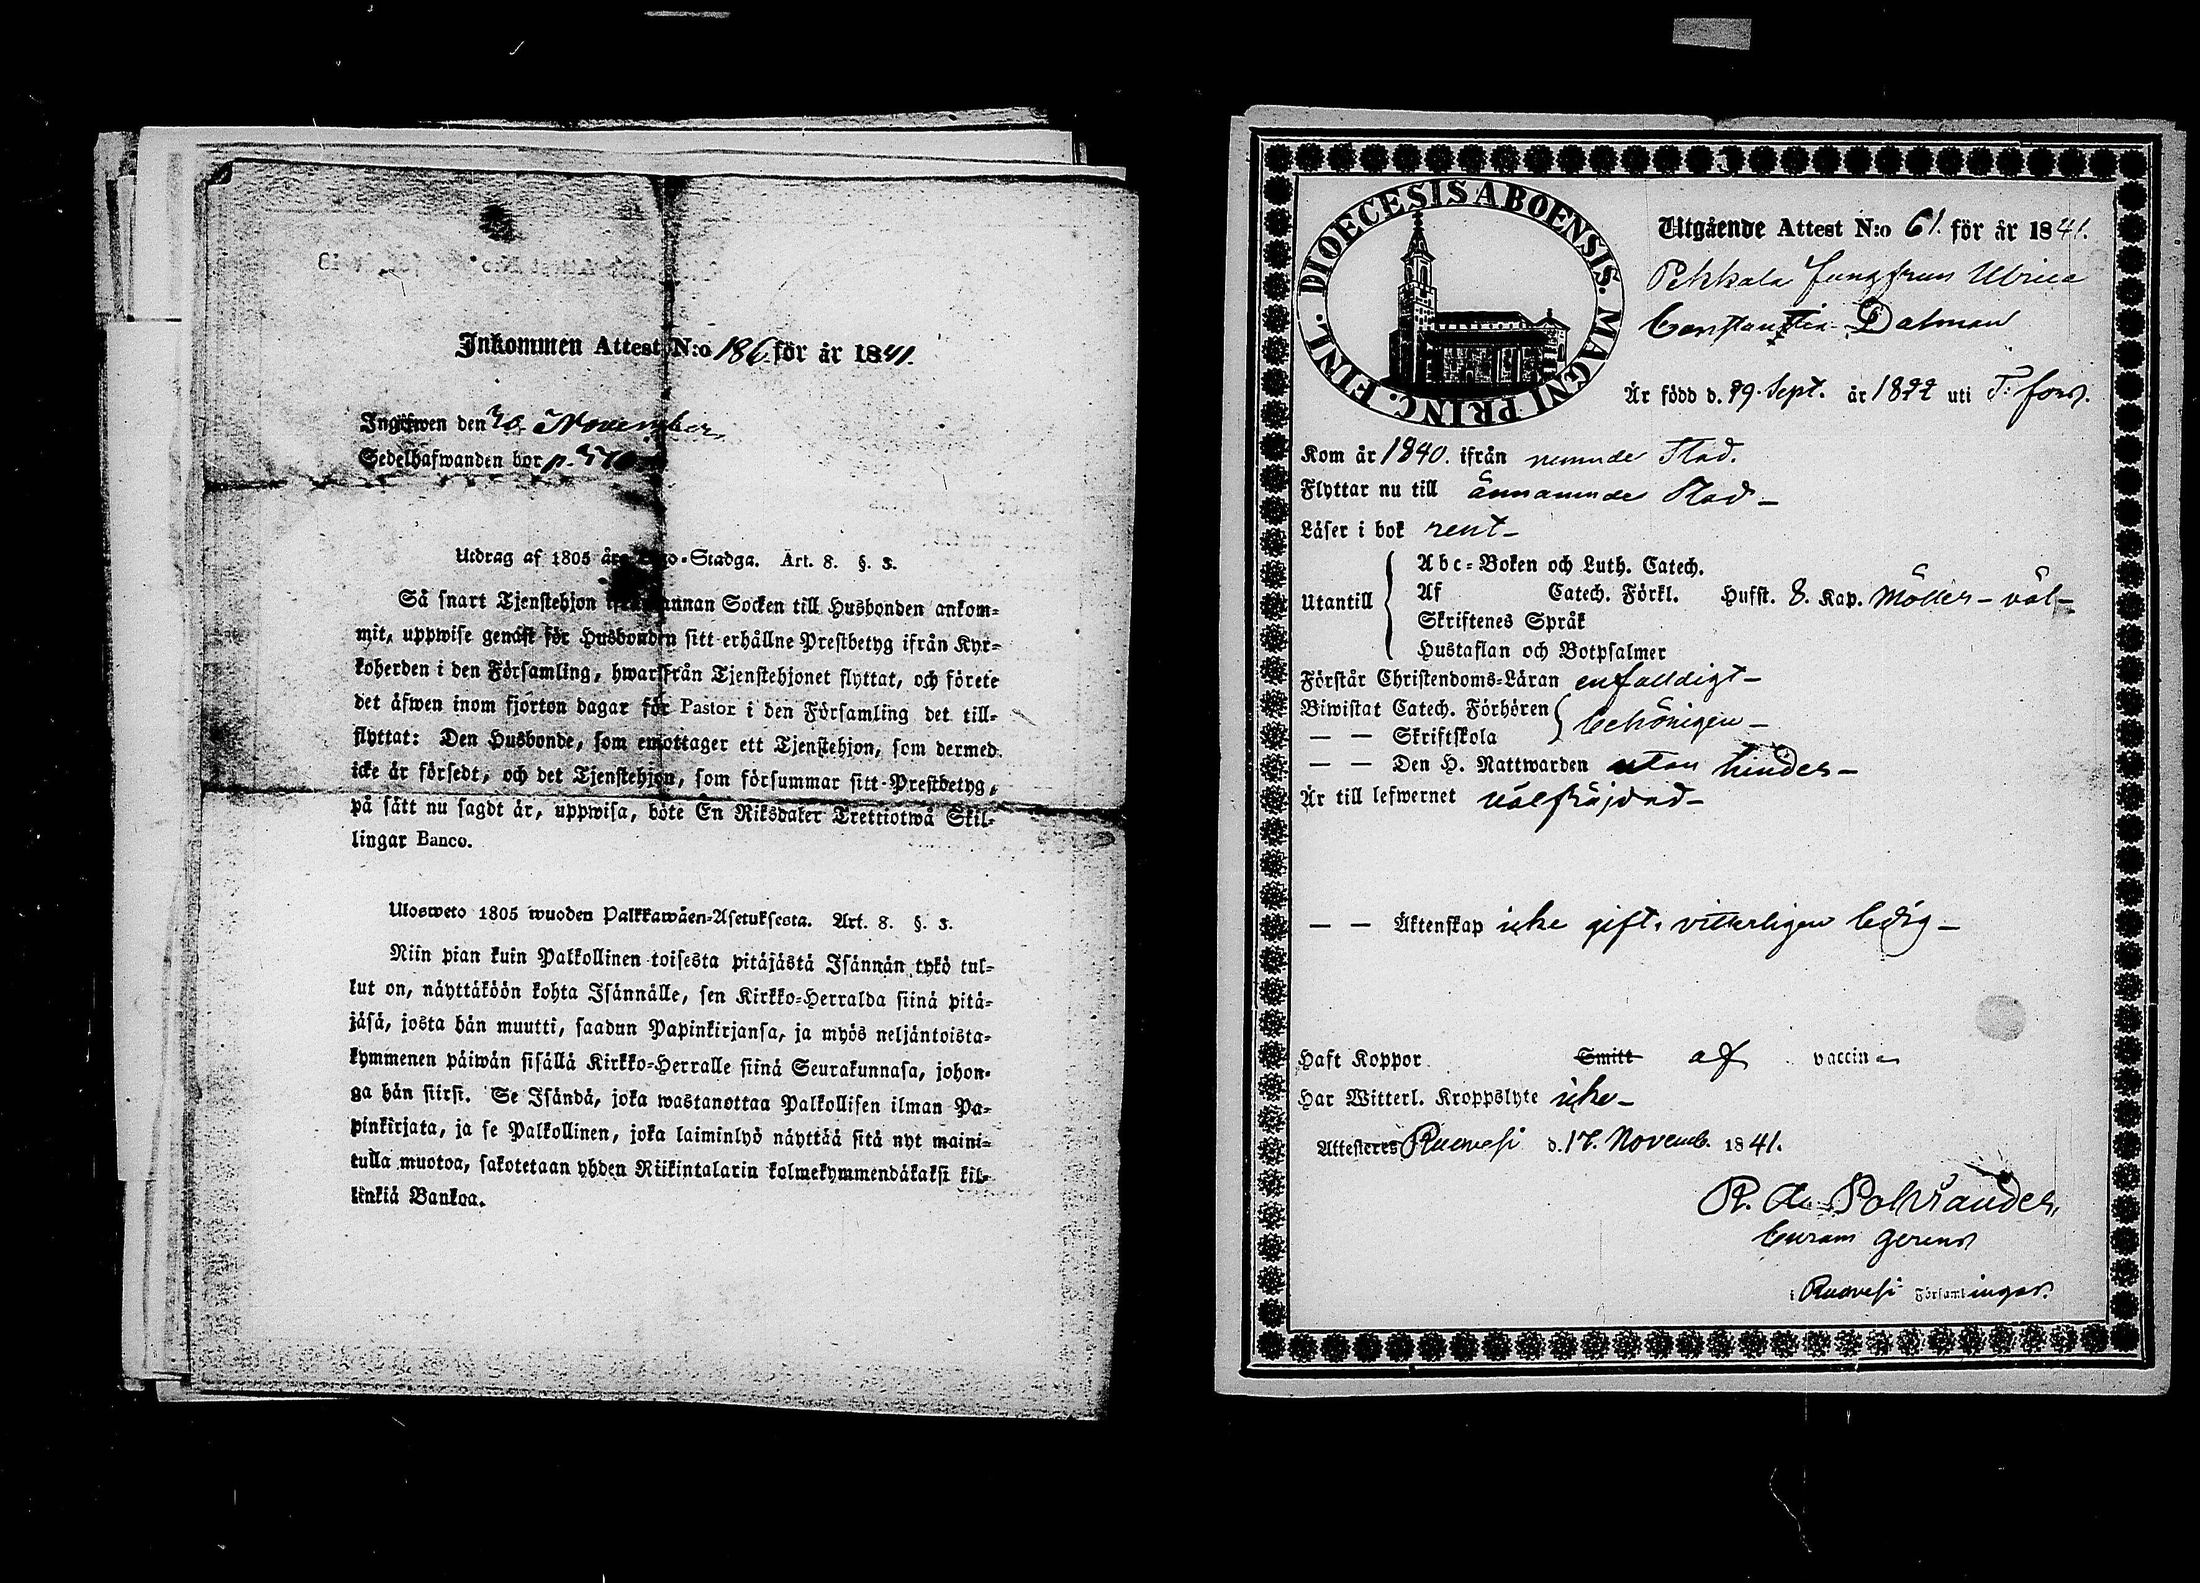 Inkommen Attest N:o 186 för år 1841.
Ingifwen den 30 November
Sedelhafwanden bor p.
Utdrag af 1805 års Lego-Stadga. Art. 8. §. 3.
Så snart Tjenstehjon ifrån annan Socken till Husbonden ankom-
mit, uppwise genäst för Husbonden sitt erhållne Prestbetyg ifrån Kyr-
koherden i den Församling, hwarifrån Tjenstehjonet flyttat, och förete
det äfwen inom fjorton dagar för Pastor i den Församling det till-
flyttat: Den Husbonde, som emottager ett Tjenstehjon, som dermed
icke är försedt, och det Tjenstehjon, som försummar sitt Prestbetyg,
på sätt nu sagdt är, uppwisa, böte En Riksdaler Trettiotwå Skil-
lingar Banco.
Ulosweto 1805 wuoden Palkkawäen-Asetuksesta. Art. 8. §. 3.
Niin pian kuin Palkollinen toisesta pitäjästä Isännän tykö tul-
lut on, näyttäköön kohta Isännälle, sen Kirkko-Herralda siinä pitä-
jäsä, josta hän muutti, saadun Papinkirjansa, ja myös neljäntoista-
kymmenen päiwän sisällä Kirkko-Herralle siinä Seurakunnasa, johon-
ga hän siirsi. Se Isändä, joka wastanottaa Palkollisen ilman Pa-
pinkirjata, ja se Palkollinen, joka laiminlyö näyttää sitä nyt maini-
tulla muotoa, sakotetaan yhden Riikintalarin kolmekymmendäkaksi kil-
linkiä Bankoa.
DIOECESIS ABOENSIS. MAGNI PRINC. FINL.
Utgående Attest N:o 61. för år 1841.
Pekkala Jungfrun Ulrica
Constantia Dalman
Är född d. 29. Sept. år 1822 uti T:fors.
Kom år 1840. ifrån nemnde Stad.
Flyttar nu till ännämnde Stad -
Läser i bok rent -
Utantill
Abc-Boken och Luth. Catech.
Af Catech. Förkl. Husst. 8. Kap. Möller - väl -
Skriftenes Språk
Hustaflan och Botpsalmer
Förstår Christendoms-Läran enfalldigt -
Biwistat Catech. Förhören
— — Skriftskola
behörigen -
— — Den H. Nattwarden utan hinder -
Är till lefwernet välfräjdad -
— — Äktenskap icke gift, vitterligen ledig -
Haft Koppor Smitt af vaccin
Har Witterl. Kroppslyte icke -
Attesteres Ruovesi d. 17. Novemb. 1841.
Curam gerens
i Ruovesi Församlingar.